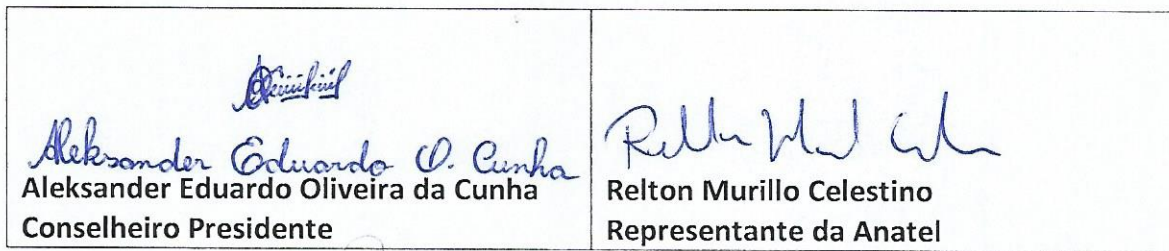 Aleksander Eduardo O. Cunha
Aleksander Eduardo Oliveira da Cunha
Conselheiro Presidente
Relton Murillo Celestino
Representante da Anatel